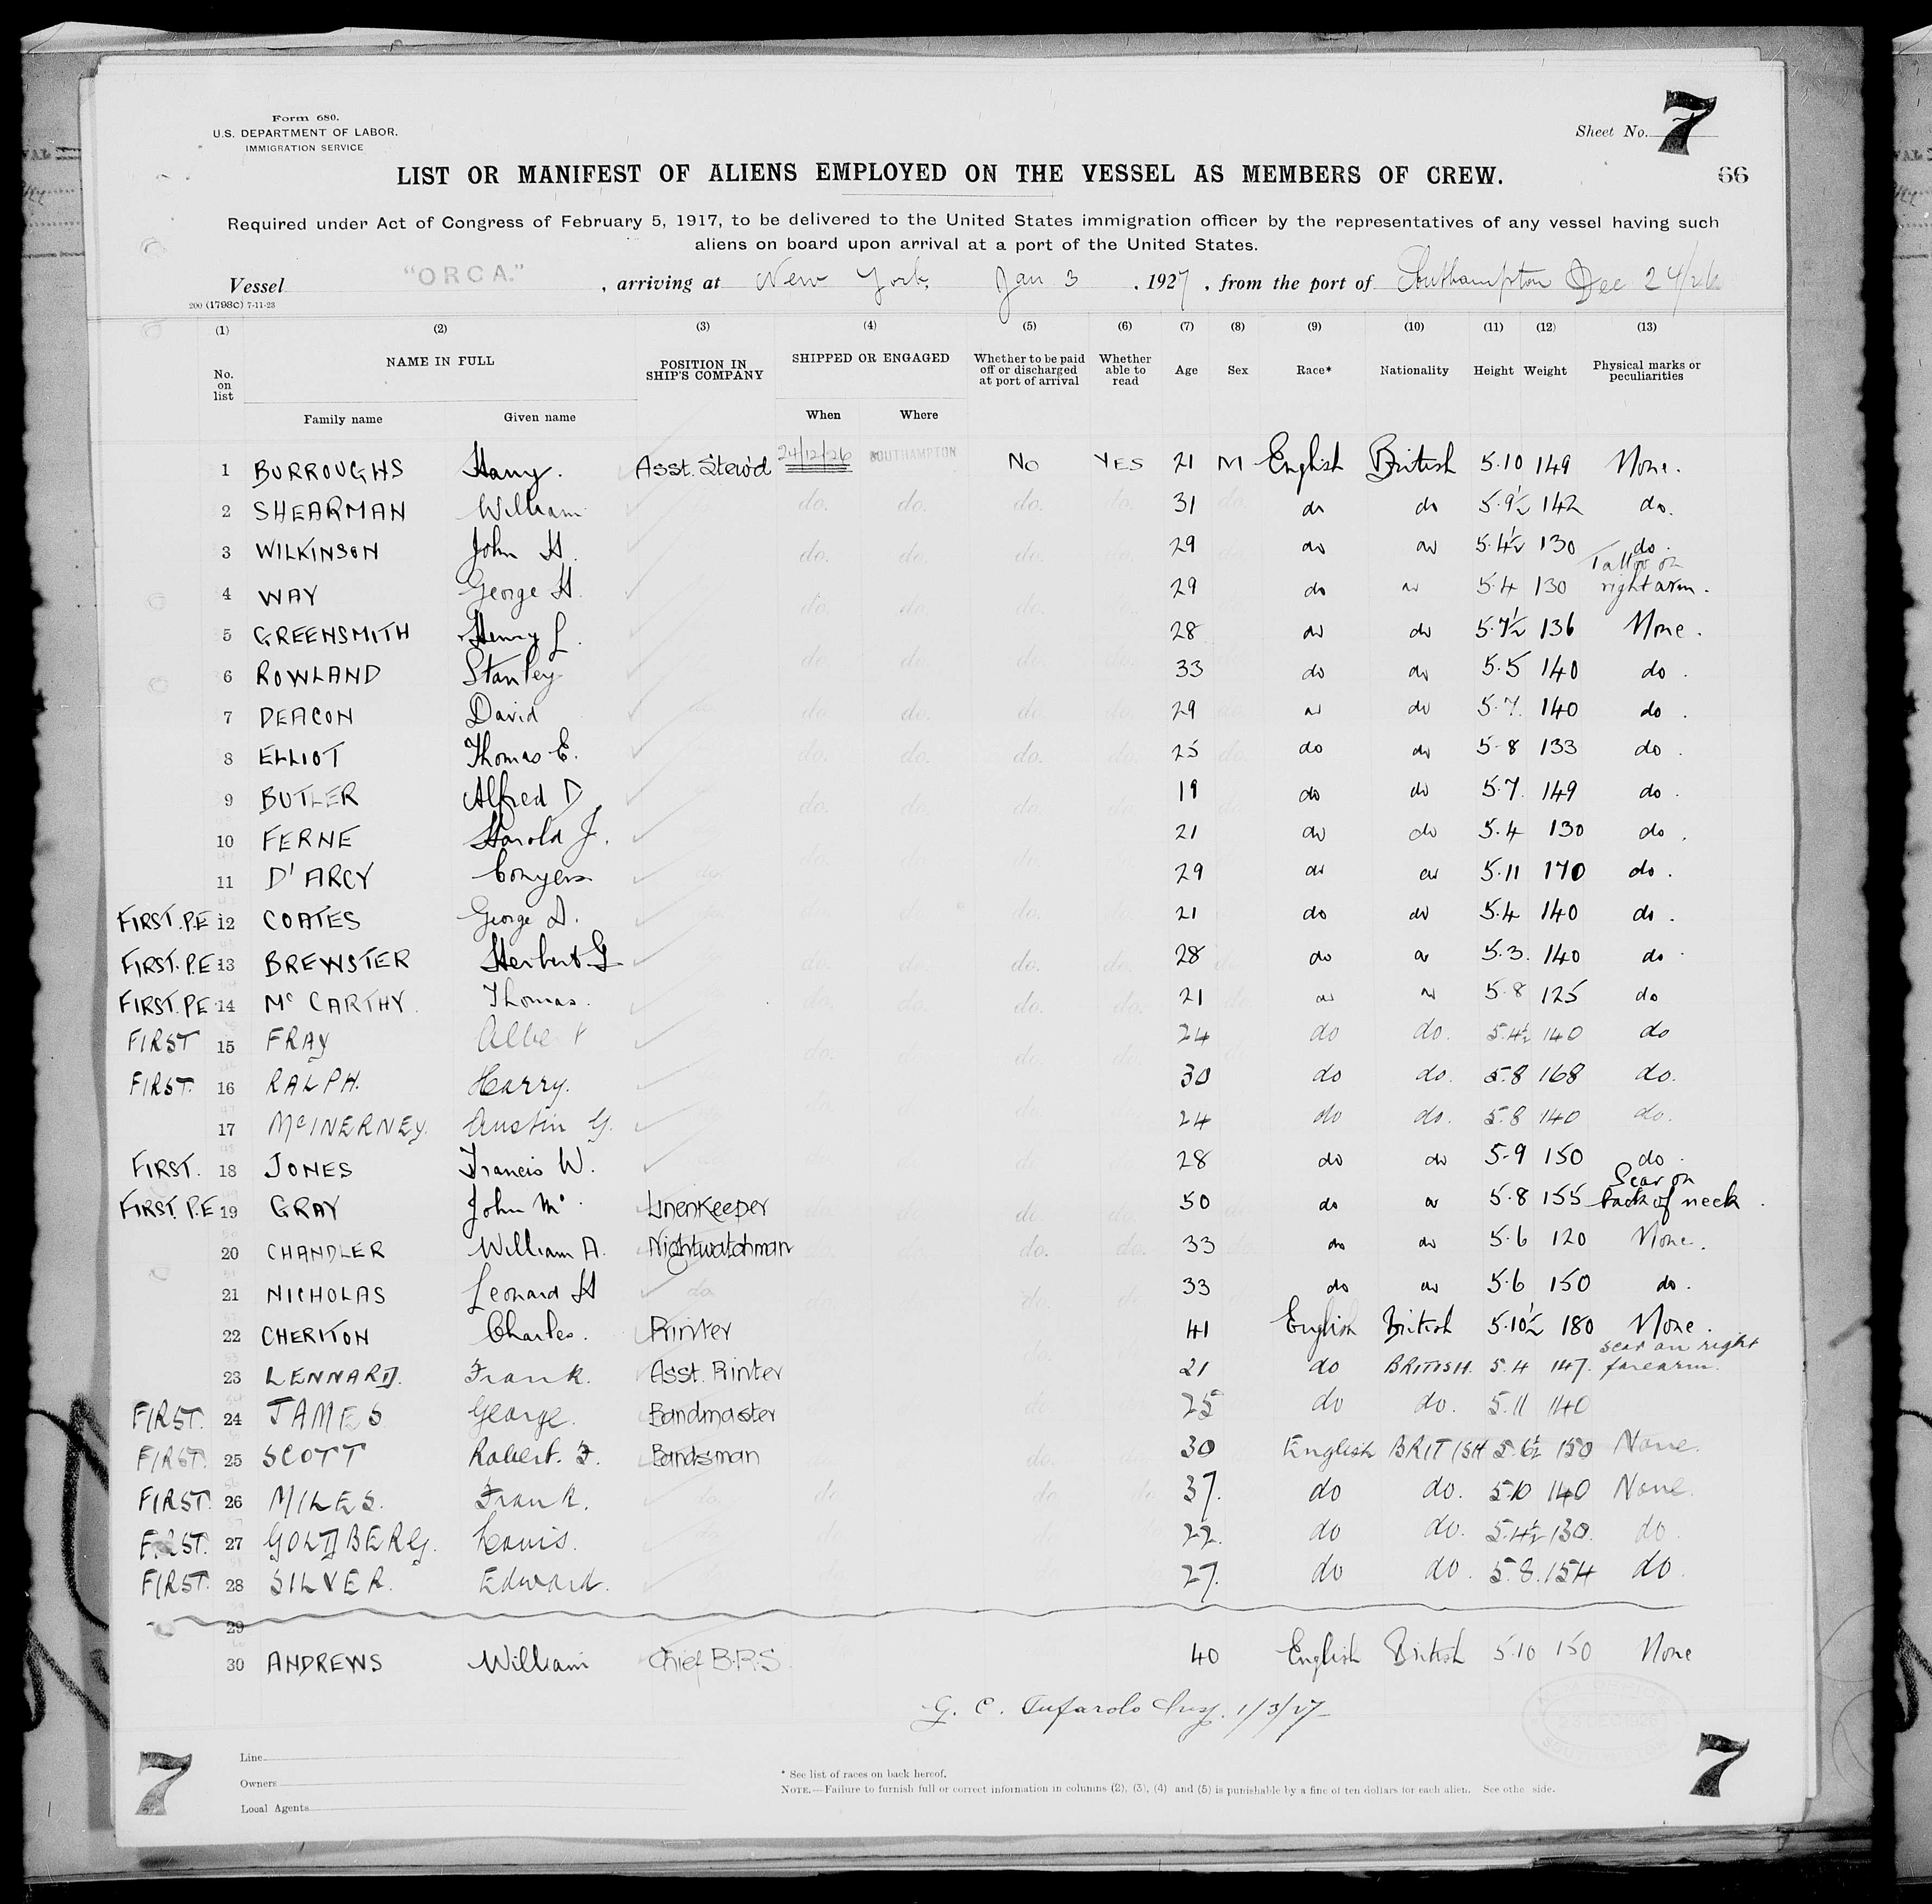 Form 680.
U.S. DEPARTMENT OF LABOR.
IMMIGRATION SERVICE
Sheet No. 7
LIST OR MANIFEST OF ALIENS EMPLOYED ON THE VESSEL AS MEMBERS OF CREW.
66
Required under Act of Congress of February 5, 1917, to be delivered to the United States immigration officer by the representatives of any vessel having such
aliens on board upon arrival at a port of the United States.
Vessel "ORCA." , arriving at New York, Jan 3 , 1927 , from the port of Southampton Dec 24/26
200 (1798c) 7-11-23
(1) (2) (3) (4) (5) (6) (7) (8) (9) (10) (11) (12) (13)
No. on list NAME IN FULL POSITION IN SHIP'S COMPANY SHIPPED OR ENGAGED Whether to be paid off or discharged at port of arrival Whether able to read Age Sex Race* Nationality Height Weight Physical marks or peculiarities
Family name Given name When Where
1 BURROUGHS Harry. Asst. Stew'd 24/12/26 SOUTHAMPTON NO YES 21 M English British 5.10 149 None.
2 SHEARMAN William do. do. do. do. 31 do. do do 5.9½ 142 do.
3 WILKINSON John H. do. do. do. do. 29 do. do do 5.4½ 130 do.
4 WAY George H. do. do. do. do. 29 do do 5.4 130 Tattoo on right arm.
5 GREENSMITH Henry L. 28 do do 5.7½ 136 None.
6 ROWLAND Stanley do. do. do. do. 33 do do 5.5 140 do.
7 DEACON David do. do. do. do. do. 29 do. do do 5.7. 140 do.
8 ELLIOT Thomas E. do. do. do. do. 25 do. do do 5-8 133 do.
9 BUTLER Alfred D do. do. do. do. 19 do do 5.7. 149 do.
10 FERNE Harold J. 21 do do 5.4 130 do.
11 D'ARCY Conyers do. do. 29 do do 5.11 170 do.
FIRST. P.E 12 COATES George D. do. 21 do do 5.4 140 do.
FIRST. P.E 13 BREWSTER Herbert G do. do. do. do. 28 do do 5.3. 140 do.
FIRST. P.E 14 McCARTHY. Thomas. do. do. do. do. 21 do do 5.8 125 do
FIRST 15 FRAY Albert do. do. do. 24 do do. 5.4½ 140 do
FIRST. 16 RALPH. Harry. 30 do do. 5.8 168 do.
17 McINERNEY. Austin G. 24 do do. 5.8 140 do.
FIRST. 18 JONES Francis W. 28 do do 5-9 150 do.
FIRST. P.E 19 GRAY John Mc. Linenkeeper do. do. do. do. 50 do do 5.8 155 Scar on back of neck.
20 CHANDLER William A. Nightwatchman do. do. do. do. 33 do. do do 5.6 120 None.
21 NICHOLAS Leonard H do. do. do. do. 33 do do 5.6 150 do.
22 CHERITON Charles. Printer 41 English British 5.10½ 180 None.
23 LENNARD. Frank. Asst. Printer 21 do BRITISH. 5.4 147. scar on right forearm.
FIRST. 24 JAMES George. Bandmaster 25 do do. 5.11 140
FIRST. 25 SCOTT Robert. F. Bandsman do. do. 30 English BRITISH 5.6½ 150 None.
FIRST. 26 MILES. Frank. do. do. do. do. 37. do do. 5.10 140 None.
FIRST. 27 GOLDBERG. Louis. do. do. do 22. do do. 5.4½ 130. do
FIRST. 28 SILVER. Edward. 27. do do. 5.8. 154 do
29
30 ANDREWS William Chief B.R.S. 40 English British 5.10 150 None
G. C. Tufarolo Insp. 1/3/27
7
Line
Owners
Local Agents
* See list of races on back hereof.
NOTE.—Failure to furnish full or correct information in columns (2), (3), (4) and (5) is punishable by a fine of ten dollars for each alien. See othe side.
7